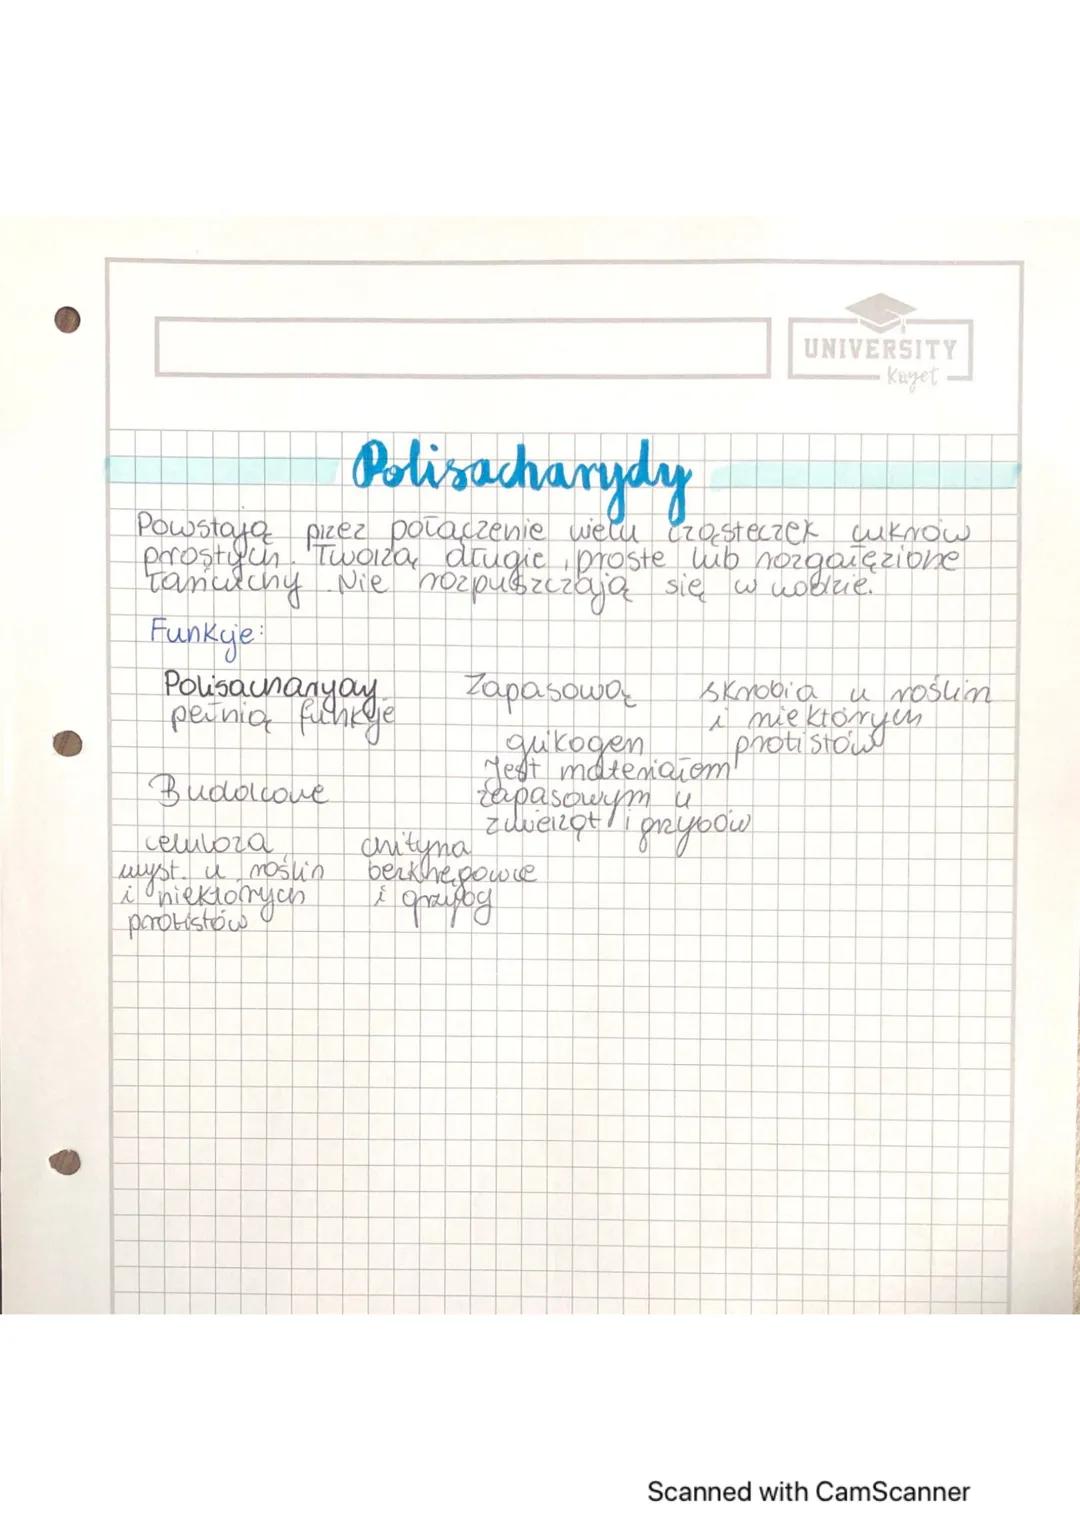 UNIVERSITY
Kayet
Polisacharydy
Powstają przez połączenie wielu cząsteczek cukrów
prostych. Tworzą długie, proste lub rozgałęzione
łańcuchy. Nie rozpuszczają się w wodzie.
Funkcje:
Polisacharydy
pełnią funkcje
Zapasową
skrobia u roślin
i niektórych
protistów
glikogen
Jest materiałom
zapasowym u
zwierząt i grzybów
Budulcowe
celuloza
wyst. u roślin
i niektórych
protistów
chityna
bezkręgowce
i grzyby
Scanned with CamScanner